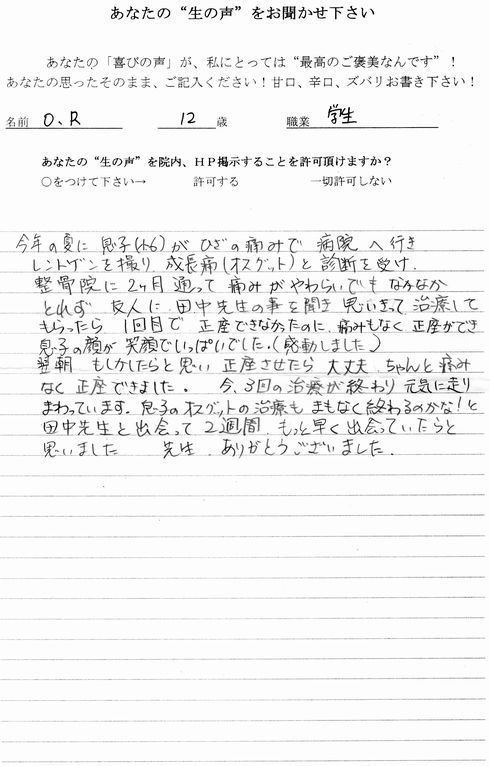 あなたの“生の声”をお聞かせ下さい
あなたの「喜びの声」が、私にとっては“最高のご褒美なんです”！
あなたの思ったそのまま、ご記入ください！甘口、辛口、ズバリお書き下さい！
名前 O、R 12 歳 職業 学生
あなたの“生の声”を院内、HP掲示することを許可頂けますか？
○をつけて下さい→ 許可する 一切許可しない
今年の夏に 息子(小6)が ひざの痛みで 病院へ行き
レントゲンを撮り、成長痛(オスグット)と診断を受け、
整骨院に2ヶ月通って痛みがやわらいでもなかなか
とれず 友人に、田中先生の事を聞き 思いきって治療して
もらったら 1回目で 正座できなかったのに、痛みもなく正座ができ
息子の顔が 笑顔でいっぱいでした。(感動しました)
翌朝 もしかしたらと思い 正座させたら 大丈夫、ちゃんと痛み
なく正座できました。 今、3回の治療が終わり 元気に走り
まわっています。息子のオスグットの治療も まもなく終わるのかな！と
田中先生と出会って 2週間、もっと早く出会っていたらと
思いました 先生、ありがとうございました。